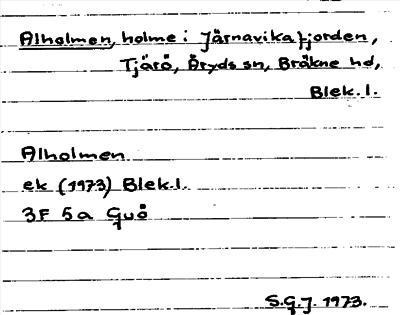 Alholmen, holme i Järnavikafjorden,
Tjärö, Åryds sn, Bräkne hd,
Blek. l.
Alholmen
ek (1973) Blek.l.
3F 5a Guö
S.G.J. 1973.